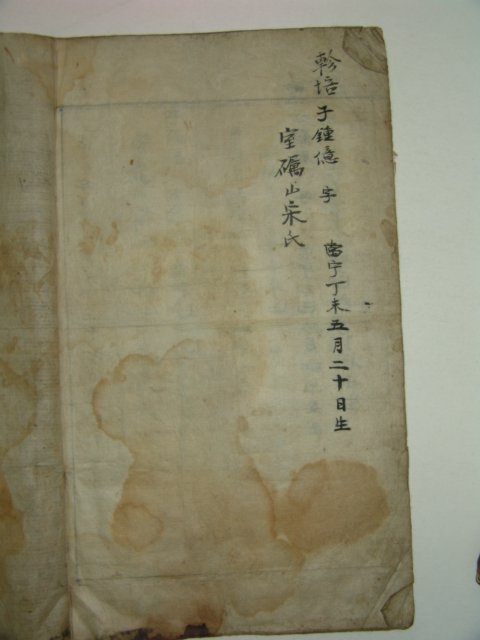 軫培 子鍾億 字 當宁丁未五月二十日生
室礪山宋氏